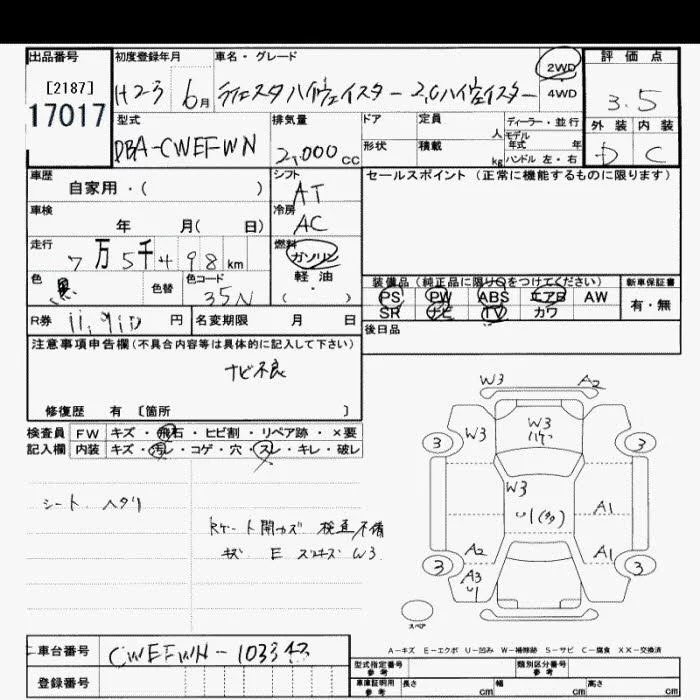 出品番号 初度登録年月 車名・グレード 評価点
[2187] H23 6月 ラフェスタハイウェイスター 2.0ハイウェイスター 2WD 4WD 3.5
17017
型式 排気量 ドア 定員 人 ディーラー・並行 外装 内装
DBA-CWEFWN 2,000 CC 形状 積載 kg モデル年式 年 D C
ハンドル 左・右
車歴 シフト セールスポイント(正常に機能するものに限ります)
自家用・( ) AT
車検 冷房
年 月( 日) AC
走行 燃料
7万5千498km ガソリン
色 黒 色替 色コード 35N 軽油
・
( )
装備品(純正品に限り○をつけてください) 新車保証書
PS PW ABS エアB AW 有・無
SR ナビ TV カワ
R券 11,910円 名変期限 月 日 後日品
注意事項申告欄(不具合内容等は具体的に記入して下さい)
ナビ不良
修復歴 有 [箇所 ]
検査員 FW キズ・飛石・ヒビ割・リペア跡・×要
記入欄 内装 キズ・汚レ・コゲ・穴・スレ・キレ・破レ
シート ヘタリ
検査不備
キズ E W3
W3 A2
W3 W3
3 3
W3
U1
A1
A2 A1
3 3
A3
U1
スペア
A-キズ E-エクボ U-凹み W-補修跡 S-サビ C-腐食 XX-交換済
車台番号 CWEFWN-1033
登録番号
型式指定番号 参考 類別区分番号 参考
車庫証明用 参考 長さ cm 幅 cm 高さ cm